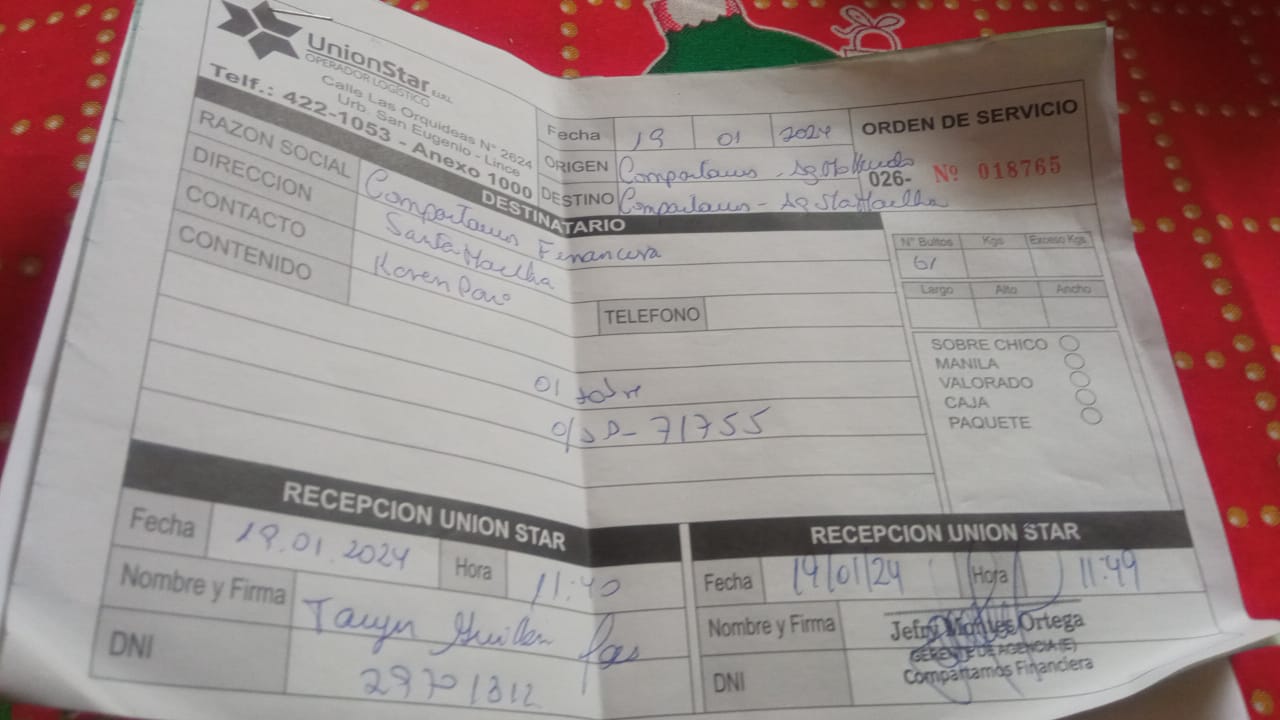 UnionStar E.I.R.L.
OPERADOR LOGÍSTICO
Calle Las Orquideas N° 2624
Urb. San Eugenio - Lince
Telf.: 422-1053 - Anexo 1000
Fecha 19 01 2024
ORIGEN Compartamos - Ag Mollendo
DESTINO Compartamos - Ag Sta Martha
ORDEN DE SERVICIO
026- Nº 018765
DESTINATARIO
RAZON SOCIAL Compartamos Financiera
DIRECCION Santa Martha
CONTACTO Karen
CONTENIDO
TELEFONO
01 sobre
71755
N° Bultos Kgs Exceso Kgs
Largo Alto Ancho
SOBRE CHICO
MANILA
VALORADO
CAJA
PAQUETE
RECEPCION UNION STAR
Fecha 19.01.2024 Hora 11:40
Nombre y Firma
DNI 29701312
RECEPCION UNION STAR
Fecha 19/01/24 Hora 11:49
Nombre y Firma Jefry Montes Ortega
GERENTE DE AGENCIA (E)
Compartamos Financiera
DNI